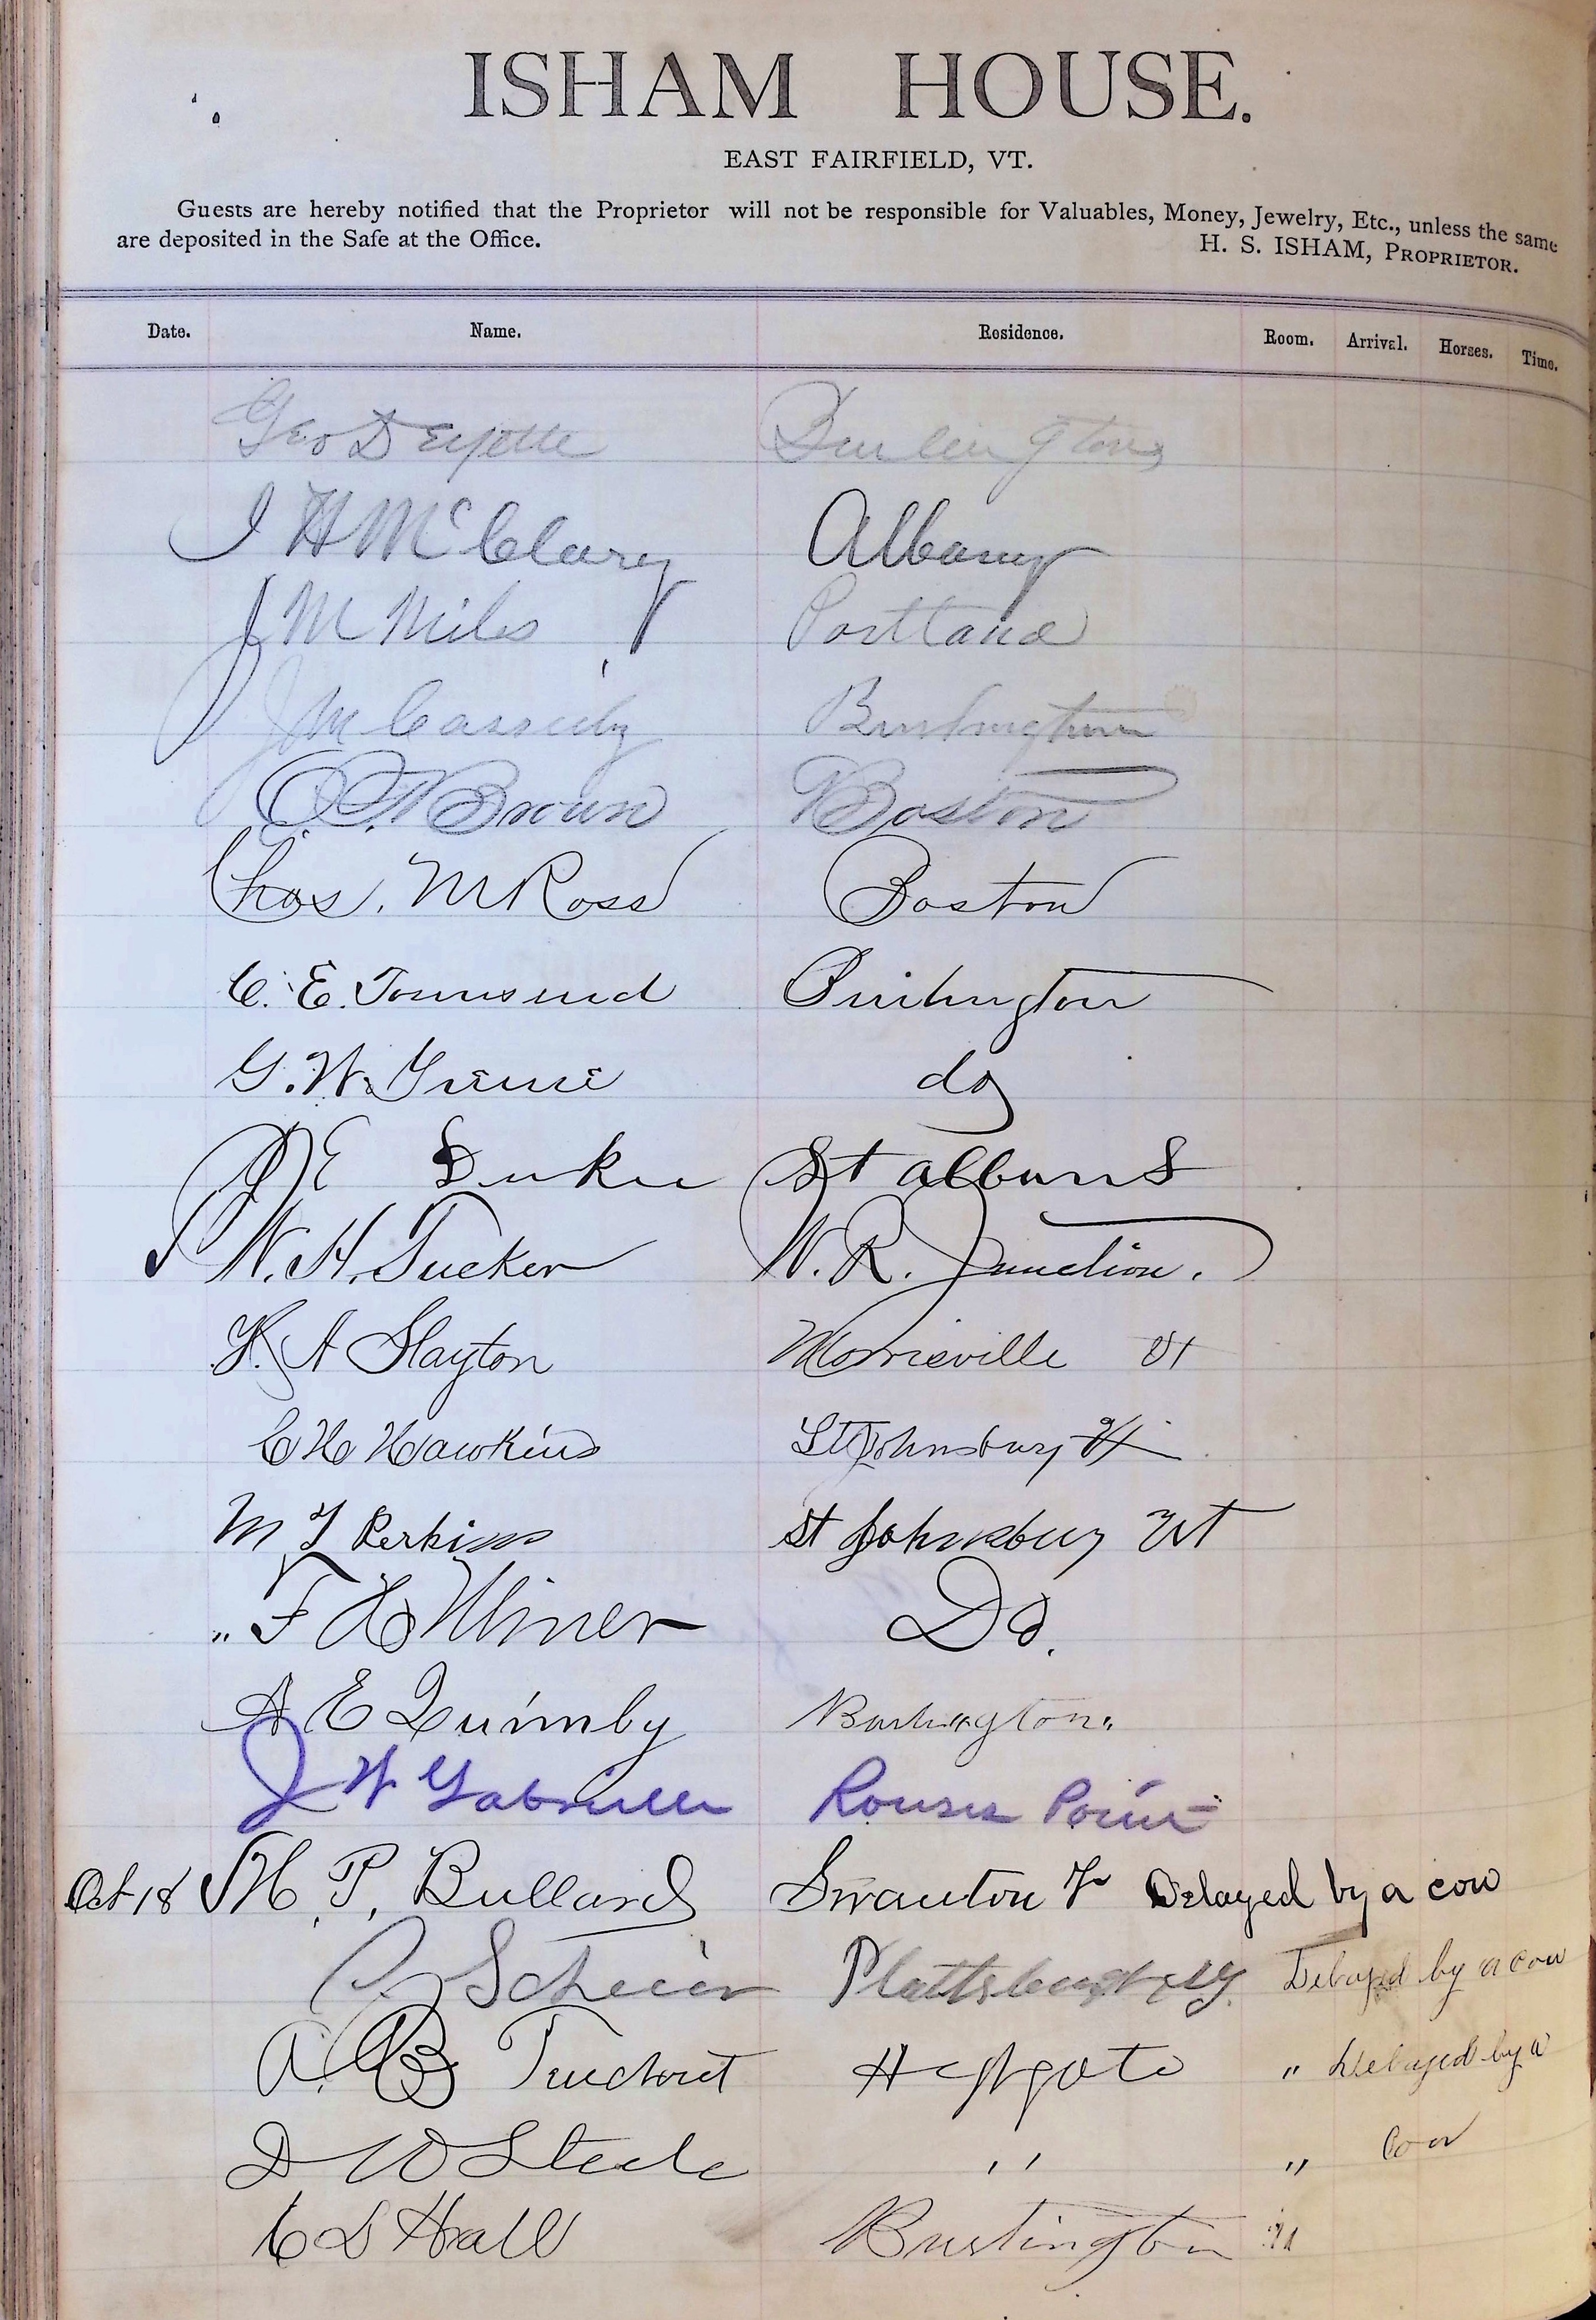 ISHAM HOUSE.
EAST FAIRFIELD, VT.
Guests are hereby notified that the Proprietor will not be responsible for Valuables, Money, Jewelry, Etc., unless the same
are deposited in the Safe at the Office.
H. S. ISHAM, PROPRIETOR.
Date. Name. Residence. Room. Arrival. Horses. Time.
Geo Deyette Burlington
J H McCleary Albany
J M Miles Portland
J M Cassidy Burlington
Brown Boston
Chas. M Ross Boston
C. E. Townsend Burlington
G. W. Greene do
E Duke St albans
W. H. Tucker W. R. Junction.
K. A Slayton Morrisville Vt
C H Hawkins St Johnsbury Vt
M J Perkins St Johnsbury Vt
" F H Miner Do.
A E Quimby Burlington
J W Gabriller Rouses Point
Oct 18 H. P. Bullard Swanton Vt Delayed by a cow
Scheier Plattsburgh NY. Delayed by a cow
A. B Truchout Highgate " Delayed by a
D W Steele " " Cow
C D Hall Burlington "